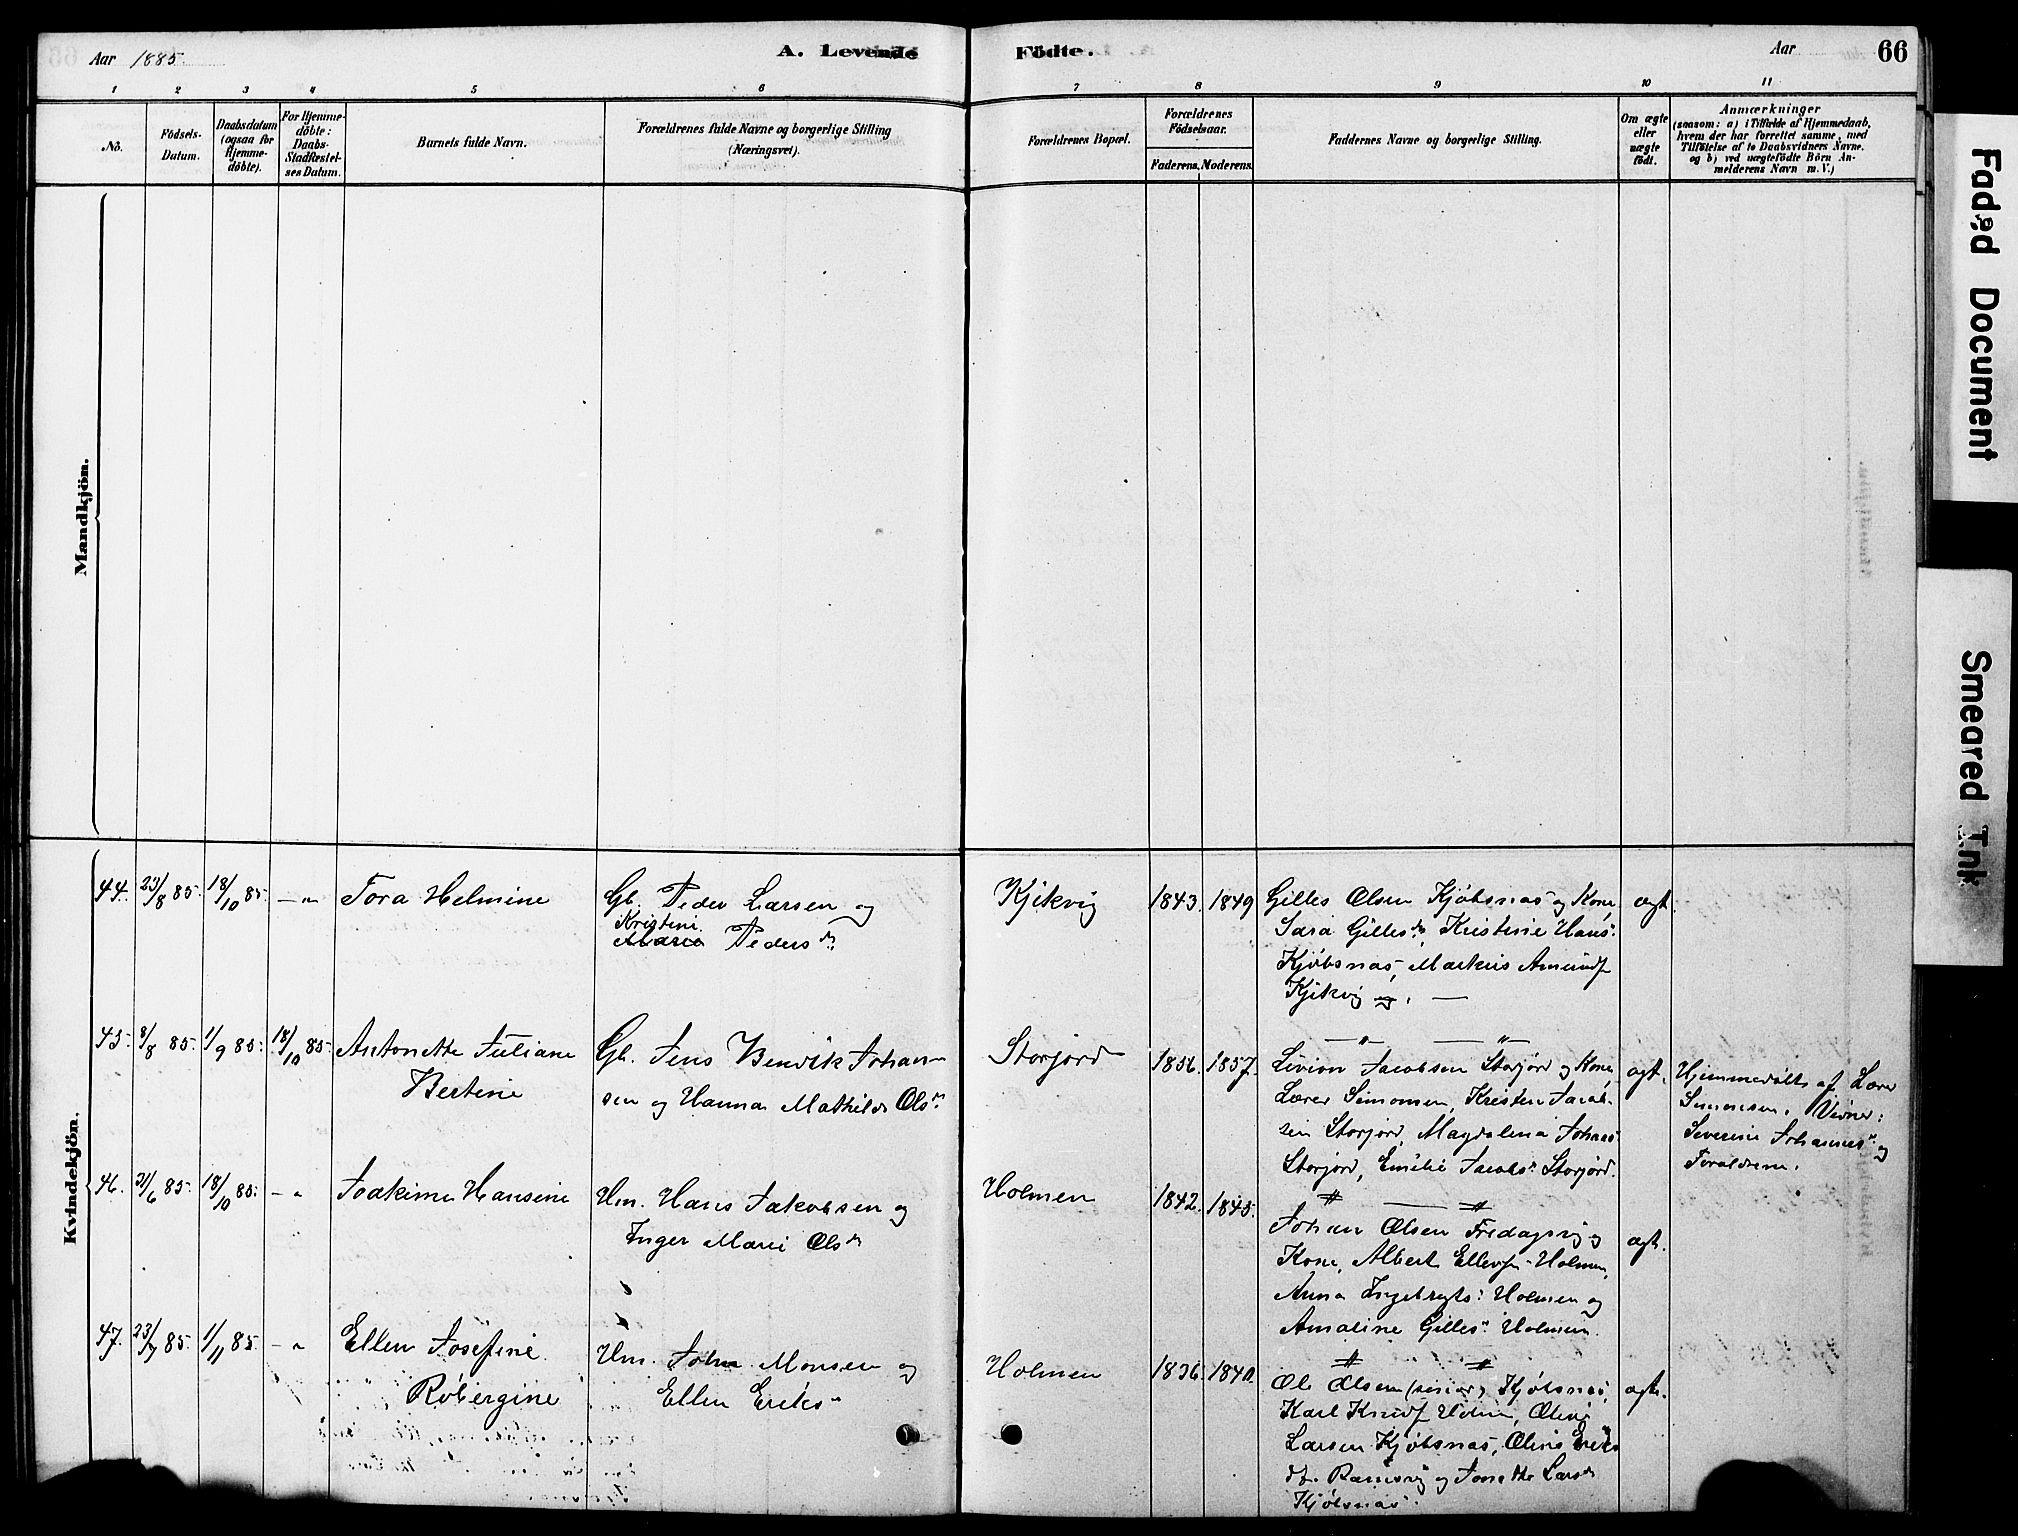 Aar 1885.
A. Levende Födte.
Aar
66
1 2 3 4 5 6 7 8 9 10 11
No.
Födsels-
Datum.
Daabsdatum
(ogsaa for
Hjemme-
döbte).
For Hjemme-
döbte:
Daabs-
Stadfæstel-
ses Datum.
Barnets fulde Navn.
Forældrenes fulde Navne og borgerlige Stilling
(Næringsvei).
Forældrenes Bopæl.
Forældrenes
Födselsaar.
Faderens. Moderens.
Faddernes Navne og borgerlige Stilling.
Om ægte
eller
uægte
födt.
Anmærkninger
(saasom: a) i Tilfælde af Hjemmedaab,
hvem der har forrettet samme, med
Tilföielse af to Daabsvidners Navne.
og b) ved uægtefödte Börn An-
melderens Navn m.V.)
Mandkjön.
Kvindekjön.
44. 23/8 85. 18/10 85. — "
Tora Helmine
Gb. Peder Larsen og
Kristine
Maria Peders d.
Kjikvig
1843. 1849
Gilles Olsen Kjöbsnas og Kone,
Sara Gilles d., Kristine Hans
Kjöbsnas, Markus Amundf
Kjikvig og. —
ægt.
45. 8/8 85. 1/9 85. 18/10 85.
Antonette Juliane
Bertine
Gb. Jens Bendik Johan-
sen og Hanna Mathilde Ols d.
Storjord
1856. 1857.
— " — — " —
Livion Jacobsen Storjord og Kone,
Lærer Simonsen, Kristen Jacob-
sen Storjord, Magdalena Johans
Storjord, Emilie Jacobs Storjord.
ægt.
Hjemmedöbt af Lærer
Simonsen. Vidner:
Severine Johannes og
Forældrene.
46. 21/6 85. 18/10 85. — "
Joakime Hansine
Hm. Hans Jakobsen og
Inger Marie Ols d.
Holmen
1842. 1845.
Johan Olsen Fredagsvig og
Kone, Albert Ellevsf Holmen,
Anna Ingebrigts Holmen og
Amaline Gilles Holmen.
ægt.
47. 23/7 85. 1/11 85. — "
Ellen Josefine
Robergine
Hm. John Monsen og
Ellen Eriks
Holmen
1836. 1840.
Ole Olsen (senior) Kjöbsnas,
Karl Knudf Holm,
Larsen Kjöbsnas, Oline Eriks
og Jonette Lars d.
Kjöbsnas.
ægt.
Faded Document
Smeared Ink